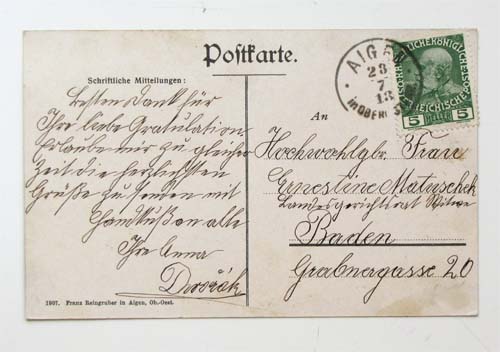 Postkarte.
Schriftliche Mitteilungen:
Besten Dank für
Ihre liebe Gratulation
Erlaube mir zu gleicher
Zeit die herzlichsten
Grüße zu senden mit
Handkuß an alle
Ihre Anna
Dvořák
1907. Franz Reingruber in Aigen, Ob.-Oest.
AIGEN
23
7
13
in OBER
5 5
An
Hochwohlgb. Frau
Ernestine Matuschek
Landesgerichtsrat Witwe
Baden
Grabnergasse 20